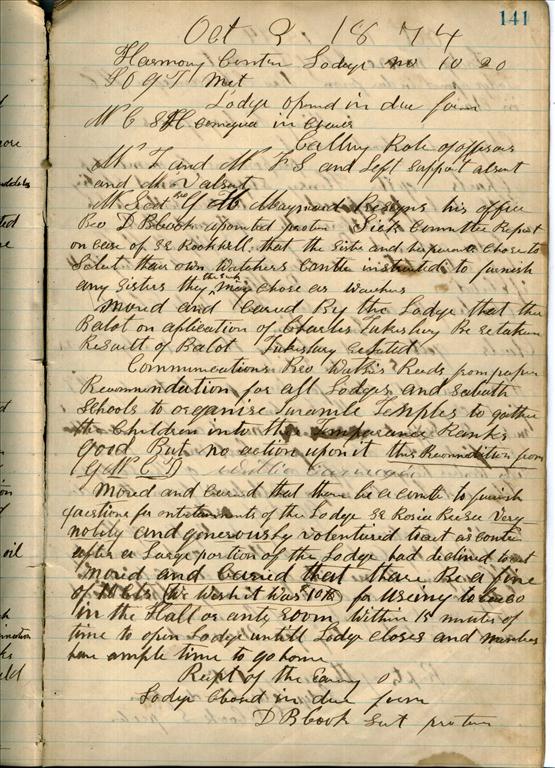 141
Oct 3 1874
Harmony Center Lodge no 1020
I O G T Met
Lodge opend in due form
in Chair
Calling Role of officers
and Left Support absent
and absent
Maynard Resigns his office
Rev D B Cook apointed protem Sick Committee Report
on Case of Rockwell, that the Sister and her parents Chose to
Select their own Watchers Comtte instructed to furnish
any Sisters they the Sick May Chose as Watchers
Moved and Caried By the Lodge that the
Balot on aplication of Charles Tukesbury Be retaken
Result of Balot Tukesbury
Communications Rev Reads from paper
Recommendation for all Lodges and Sabath
Schools to organise Juvenile Temples to gather
the Children into the Temperance Ranks
good But no action upon it this from
Moved and Caried that there be a Comtte to furnish
questions for of the Lodge Rosia very
nobly and generously volentured to act as Comtte
after a Large portion of the Lodge had declined to act
Moved and Caried that there Be a fine
of 10 Cts (We Wish it Was 10 ) for useing tobacco
in the Hall or ante Room, Within 15 minutes of
time to open Lodge untill Lodge closes and members
have ample time to go home
Recpt of the Evening 0
Lodge Closed in due form
D B Cook Sect protem
oil